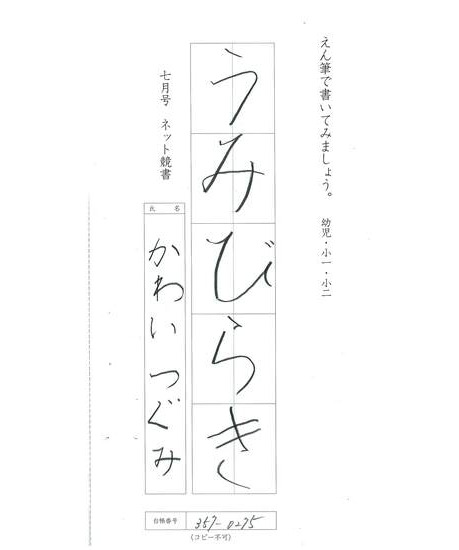 えん筆で書いてみましょう。 幼児・小一・小二
うみびらき
七月号 ネット競書
氏名
かわいつぐみ
台帳番号 357-0275
(コピー不可)